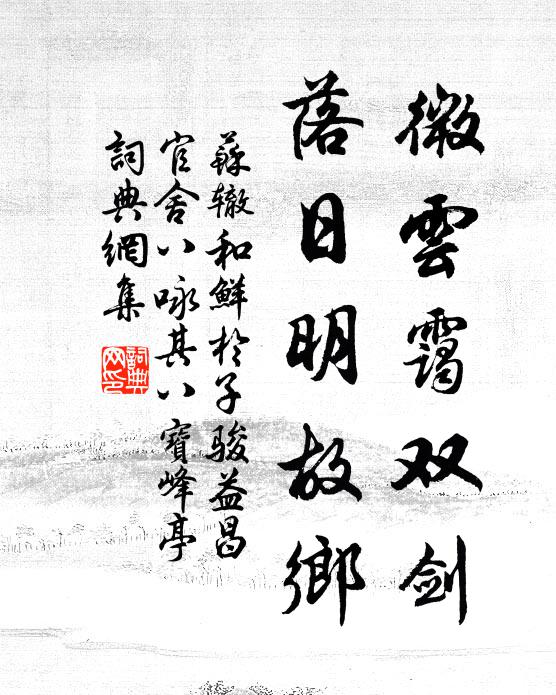 微雲靄双劍
落日明故鄉
蘇轍和鮮於子駿益昌
官舍八咏其八寶峰亭
詞典網集
詞典
网印